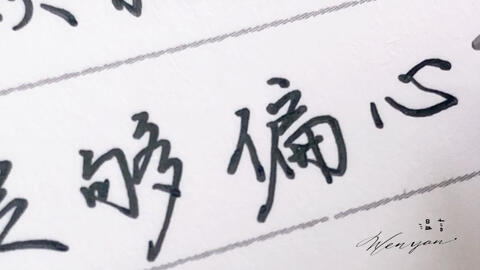 够偏心
温言
Wenyan.